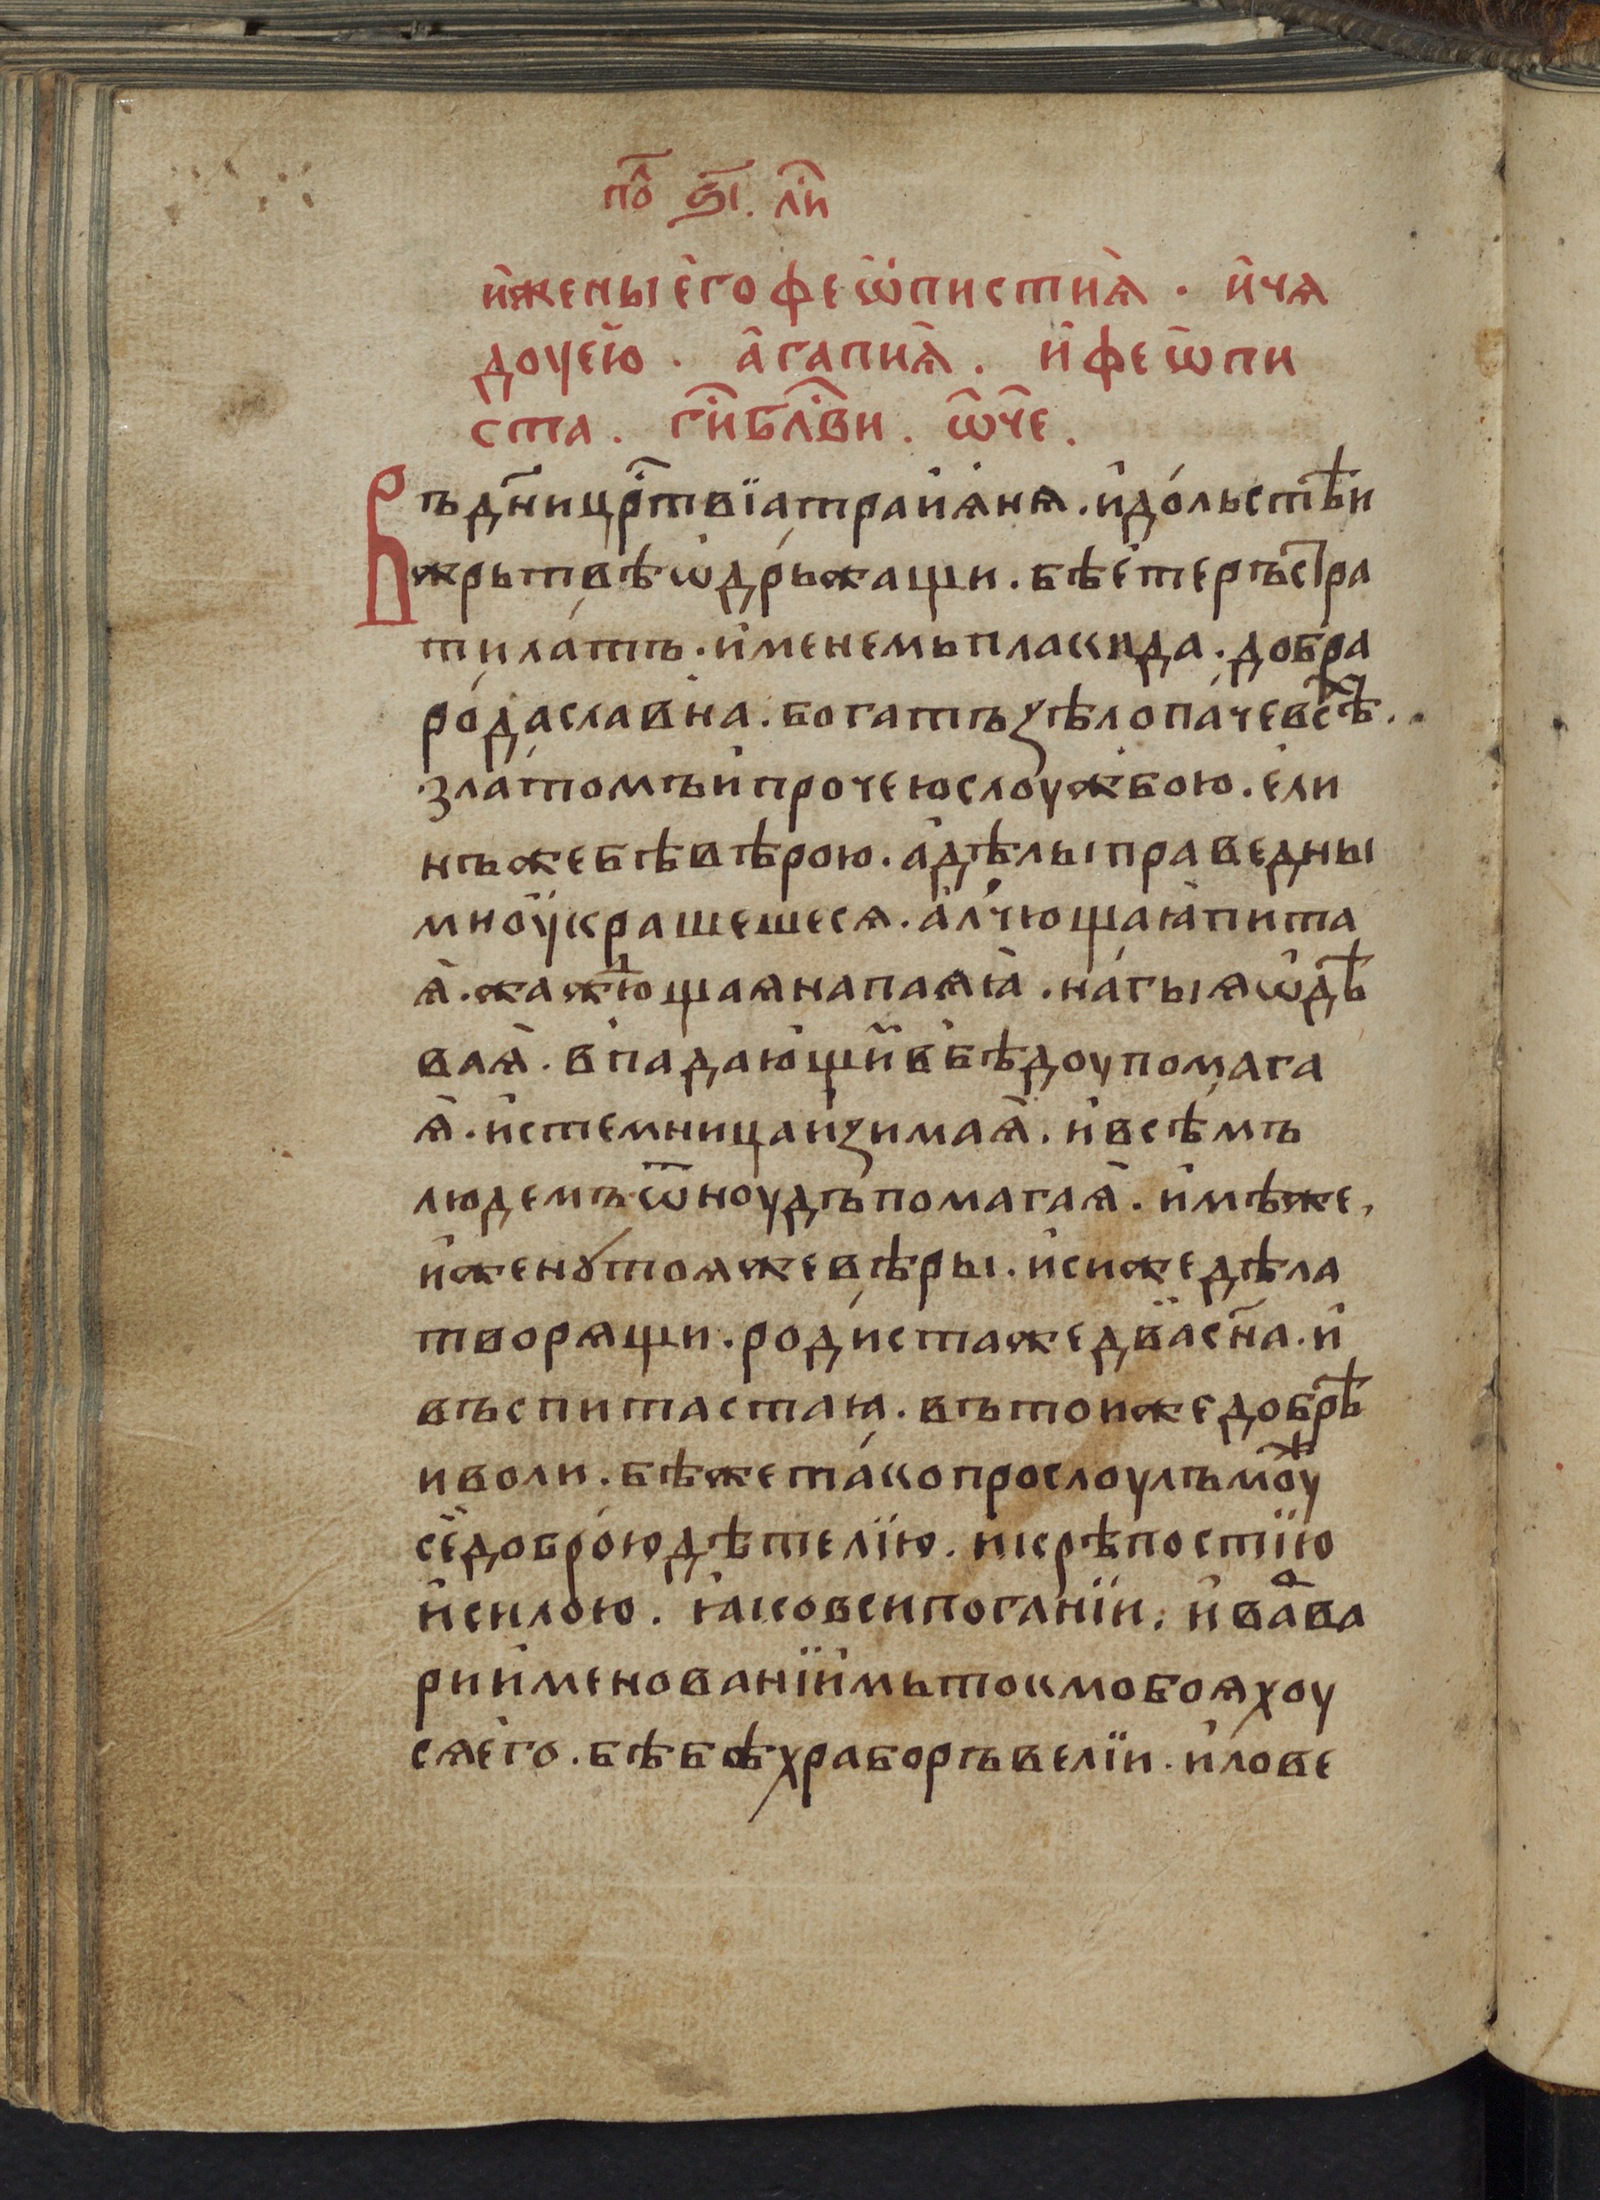 пⷣо ѕ҃і. ли҃
и҆жены е҆го феѡ҆пистиѧ҆ . и҆чѧ
доꙋею҆ . а҆гапиѧ҆ . и҆ феѡ҆пи
ста . ги҃ блв҃и . ѡ҆ч҃е .
Въ дн҃и цр҃твїа траиѧнѧ . и҆до́льстѣи
жрьтвѣ ѡ҆дрьжащи . бѣ е҆теръ стра
тила́тъ . и҆менемь плакида . добра
ро́да славна . богатъ ꙁѣло па́че всѣⷯ .
златомъ и҆ прочею слоужбою . е҆ли
нъ же бѣ вѣрою . а҆ дѣлы праведны
мноу҆крашешесѧ . а҆лчющаꙗ пита
ѧ҆ . жажющаѧ напаѧꙗ . нагыѧ ѡ҆дѣ
ваѧ҆ . впадающи҆ в бѣдоу помага
ѧ҆ . и҆с темница иꙁимаѧ҆ . и҆ всѣмъ
людемъ ѿноудъ помагаѧ҆ . и҆мѣ же ,
и҆ женꙋ тоѧ же вѣры . и҆ си же дѣла
творѧщи . родиста же два сн҃а . и҆
въспитаста ꙗ . въ тои же добрѣ
и воли . бѣ же та́ко прослоулъ моуⷤ
се҆ доброю дѣтелїю . и҆ крѣпостїю
и҆ силою . ꙗко вси поганїи . и҆ ваⷬва
ри и҆менованїи҆мь токмо боѧхоу
сѧ е҆го . бѣ бо храборъ велїи . и҆ лове